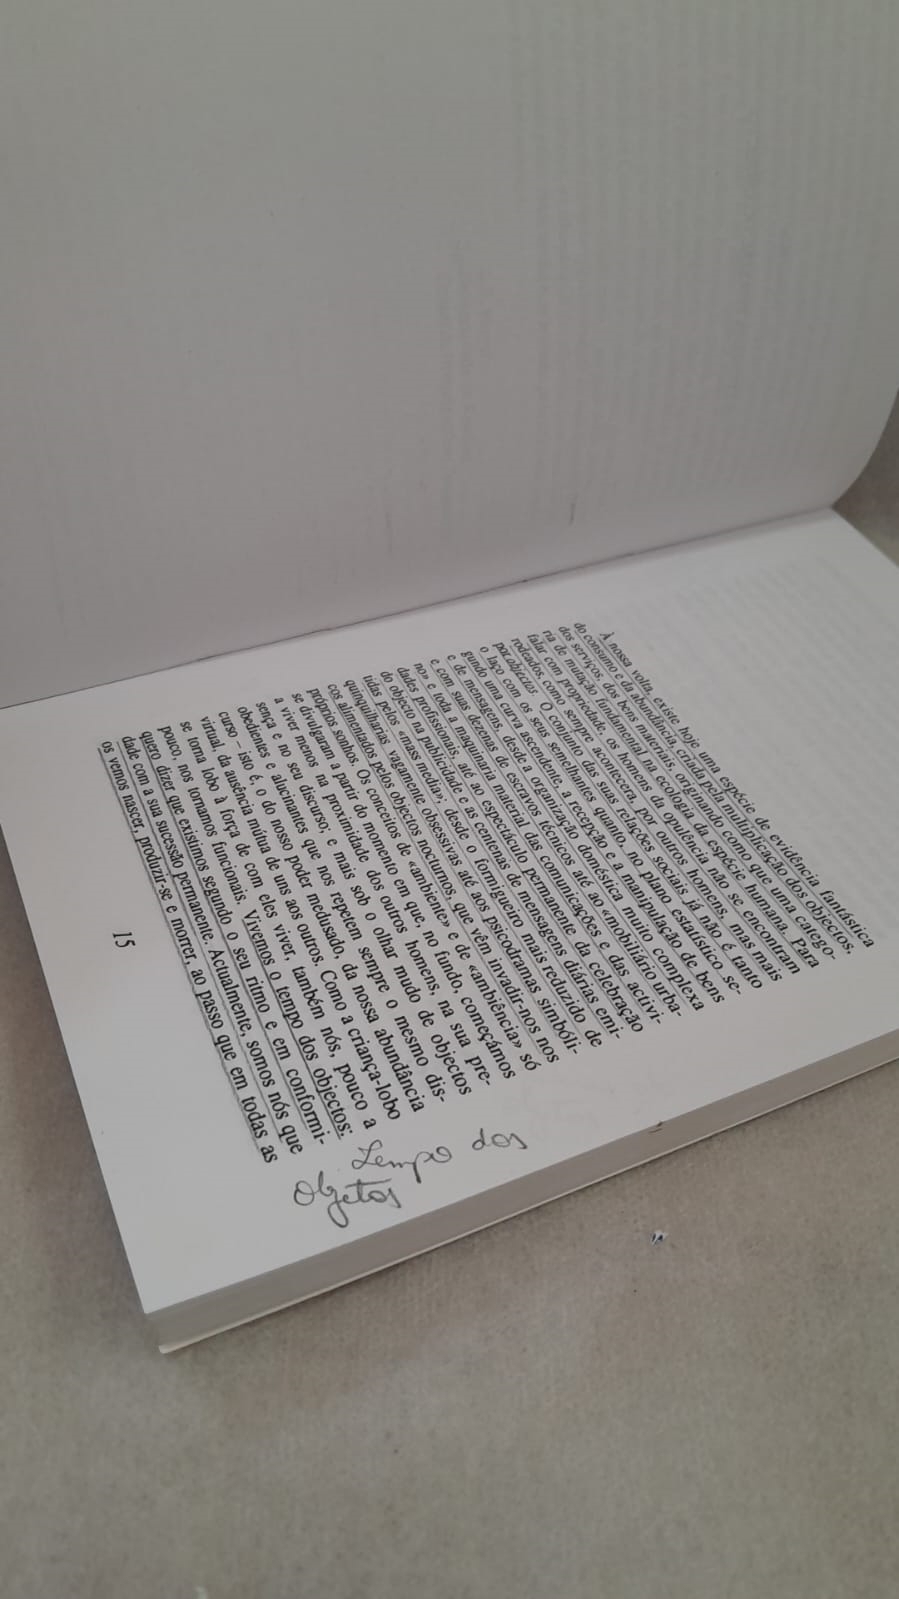 À nossa volta, existe hoje uma espécie de evidência fantástica
do consumo e da abundância, criada pela multiplicação dos objectos,
dos serviços, dos bens materiais, originando como que uma catego-
ria de mutação fundamental na ecologia da espécie humana. Para
falar com propriedade, os homens da opulência não se encontram
rodeados, como sempre acontecera, por outros homens, mas mais
por objectos. O conjunto das suas relações sociais já não é tanto
o laço com os seus semelhantes quanto, no plano estatístico se-
gundo uma curva ascendente, a recepção e a manipulação de bens
e de mensagens, desde a organização doméstica muito complexa
e com suas dezenas de escravos técnicos até ao «mobiliário urba-
no» e toda a maquinaria material das comunicações e das activi-
dades profissionais, até ao espectáculo permanente da celebração
do objecto na publicidade e as centenas de mensagens diárias emi-
tidas pelos «mass media»; desde o formigueiro mais reduzido de
quinquilharias vagamente obsessivas até aos psicodramas simbóli-
cos alimentados pelos objectos nocturnos, que vêm invadir-nos nos
próprios sonhos. Os conceitos de «ambiente» e de «ambiência» só
se divulgaram a partir do momento em que, no fundo, começámos
a viver menos na proximidade dos outros homens, na sua pre-
sença e no seu discurso; e mais sob o olhar mudo de objectos
obedientes e alucinantes que nos repetem sempre o mesmo dis-
curso – isto é, o do nosso poder medusado, da nossa abundância
virtual, da ausência mútua de uns aos outros. Como a criança-lobo
se torna lobo à força de com eles viver, também nós, pouco a
pouco, nos tornamos funcionais. Vivemos o tempo dos objectos:
quero dizer que existimos segundo o seu ritmo e em conformi-
dade com a sua sucessão permanente. Actualmente, somos nós que
os vemos nascer, produzir-se e morrer, ao passo que em todas as
Tempo dos
Objetos
15